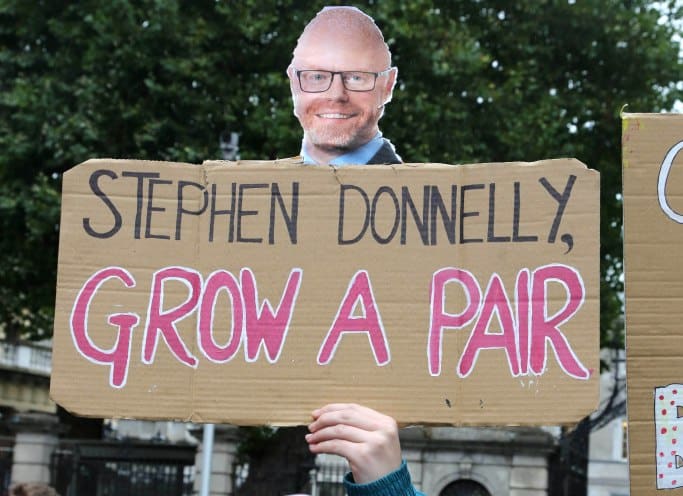 STEPHEN DONNELLY,
GROW A PAIR